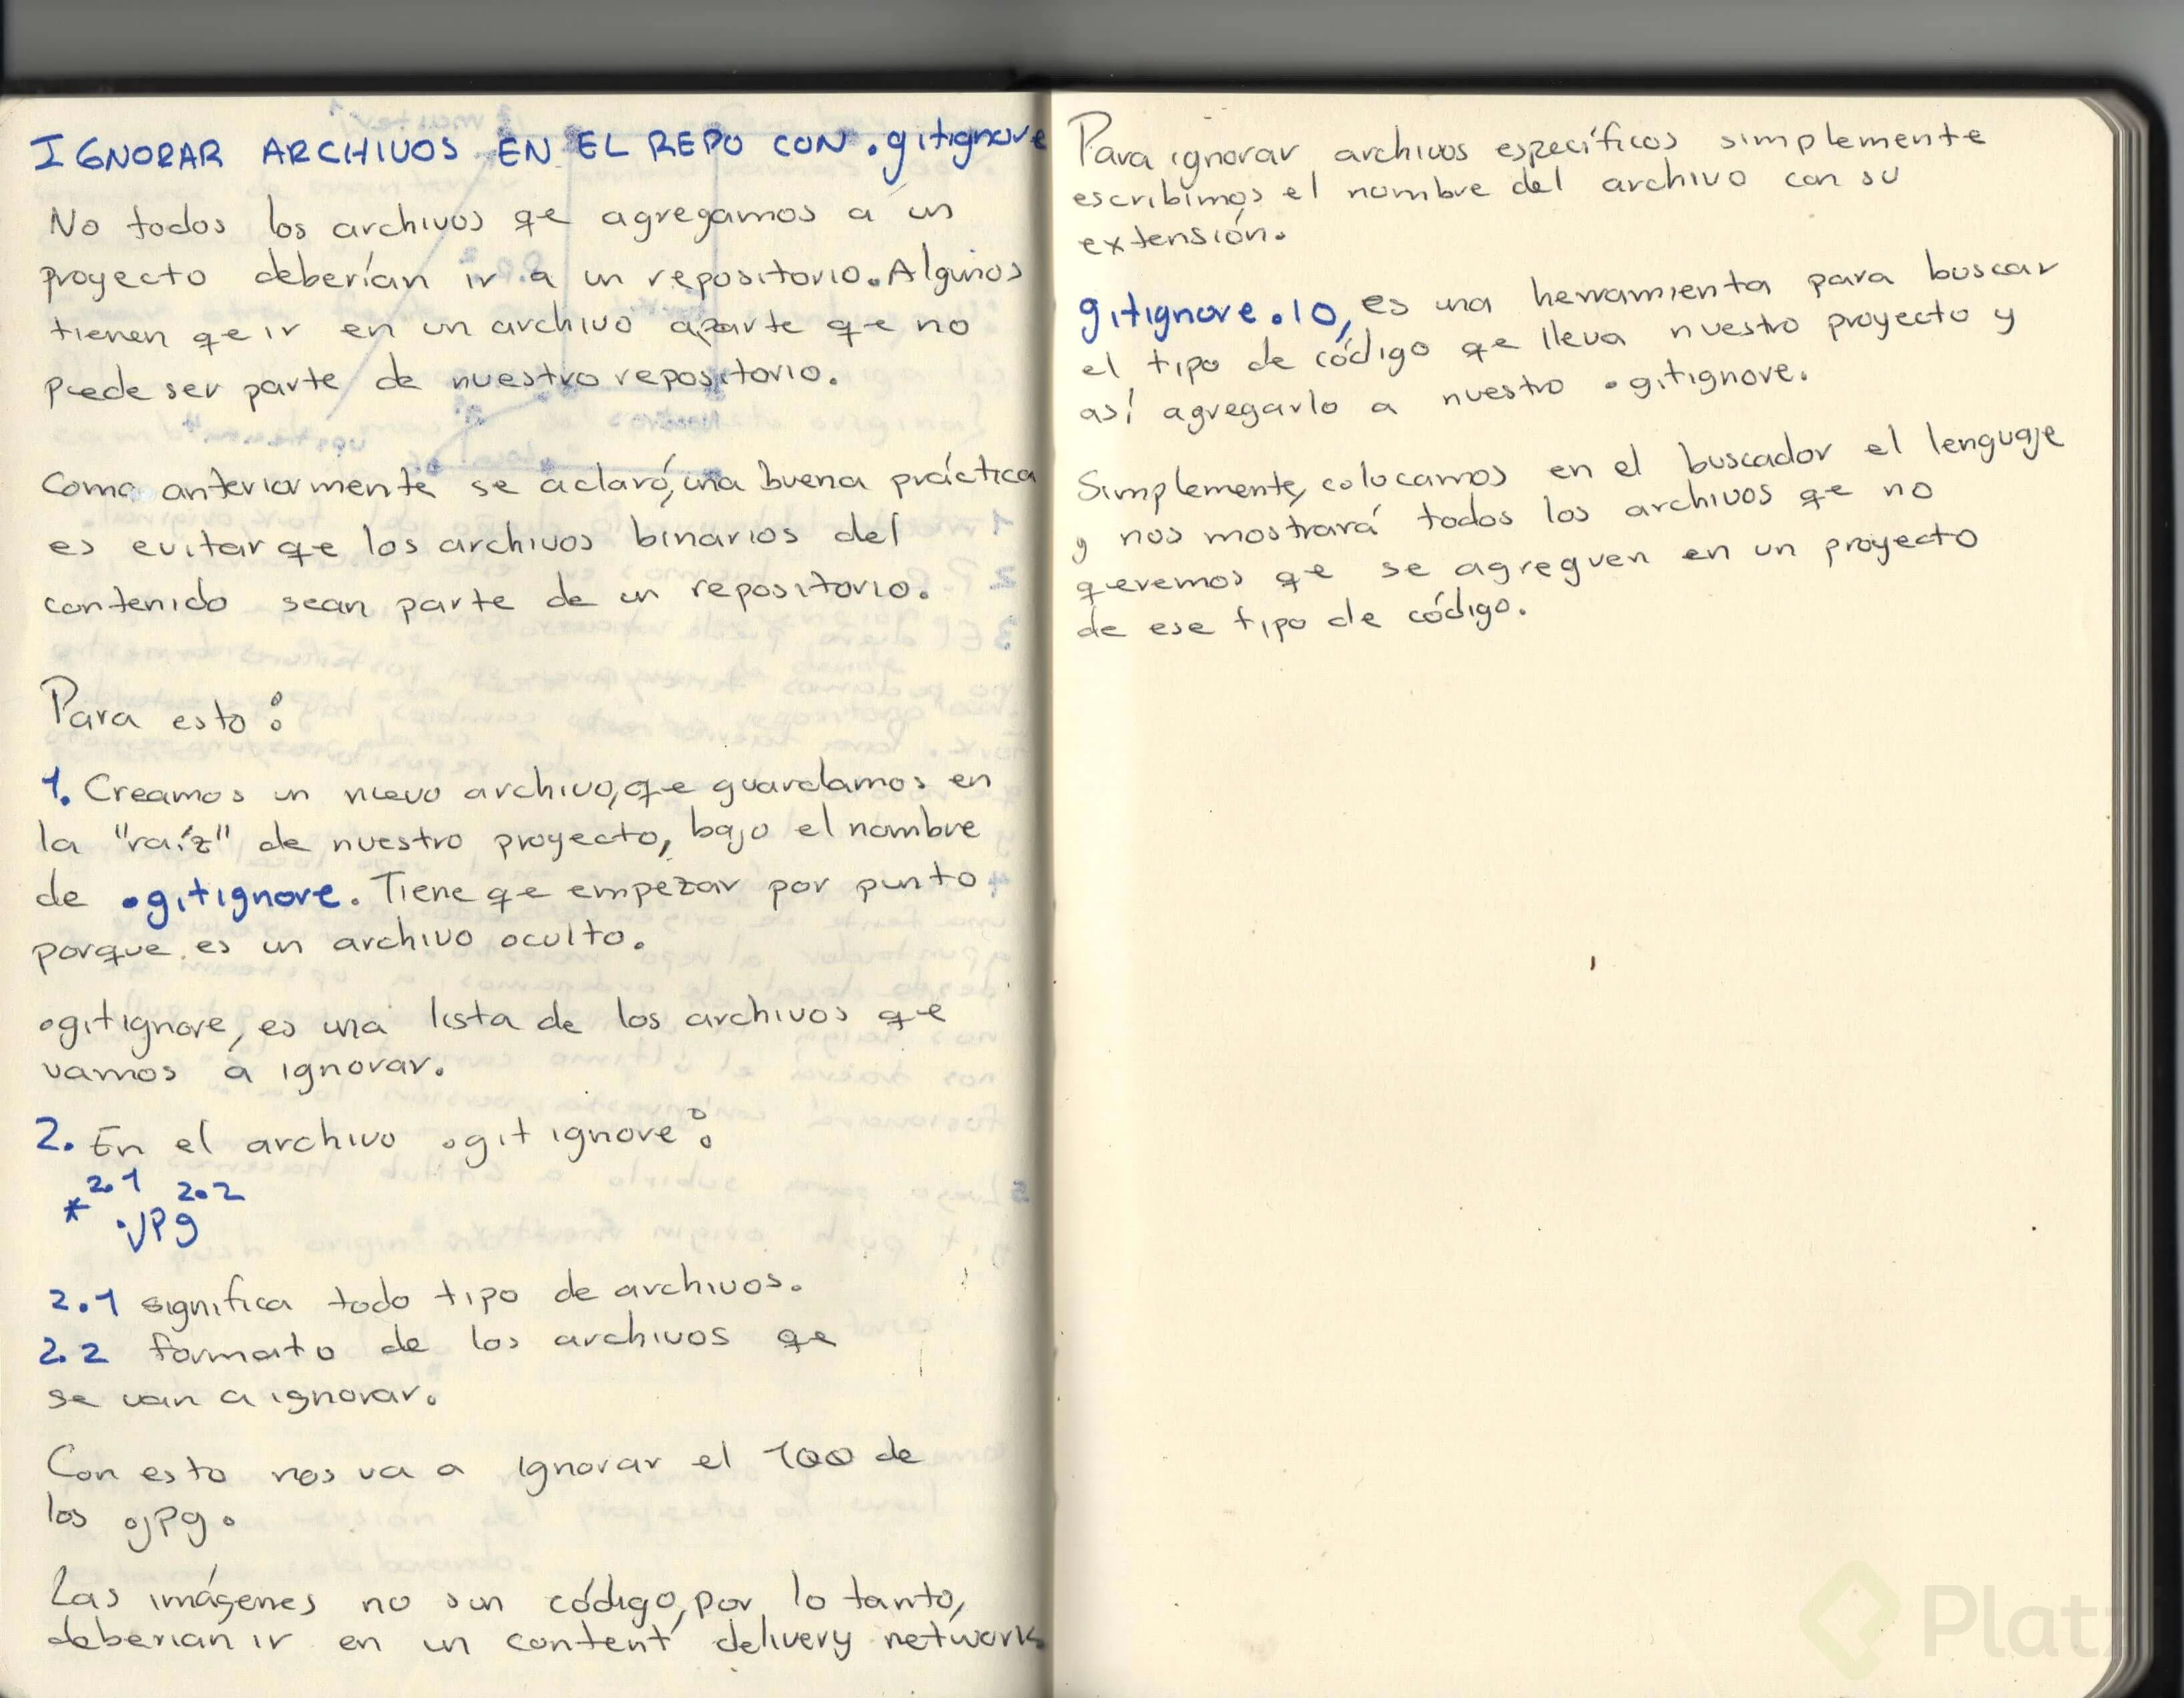 IGNORAR ARCHIVOS EN EL REPO CON .gitignore
No todos los archivos qe agregamos a un
proyecto deberían ir a un repositorio. Algunos
tienen qe ir en un archivo aparte qe no
puede ser parte de nuestro repositorio.
Como anteriormente se aclaró, una buena práctica
es evitar qe los archivos binarios del
contenido sean parte de un repositorio.
Para esto:
1. Creamos un nuevo archivo, qe guardamos en
la "raíz" de nuestro proyecto, bajo el nombre
de .gitignore. Tiene qe empezar por punto
porque es un archivo oculto.
.gitignore, es una lista de los archivos qe
vamos a ignorar.
2. En el archivo .gitignore:
2.1 2.2
* .jpg
2.1 significa todo tipo de archivos.
2.2 formato de los archivos qe
se van a ignorar.
Con esto nos va a ignorar el 100 de
los .jpg.
Las imágenes no son código, por lo tanto,
deberían ir en un content delivery network
Para ignorar archivos específicos simplemente
escribimos el nombre del archivo con su
extensión.
gitignore.io, es una herramienta para buscar
el tipo de código qe lleva nuestro proyecto y
así agregarlo a nuestro .gitignore.
Simplemente, colocamos en el buscador el lenguaje
y nos mostrará todos los archivos qe no
queremos qe se agreguen en un proyecto
de ese tipo de código.
Platzi